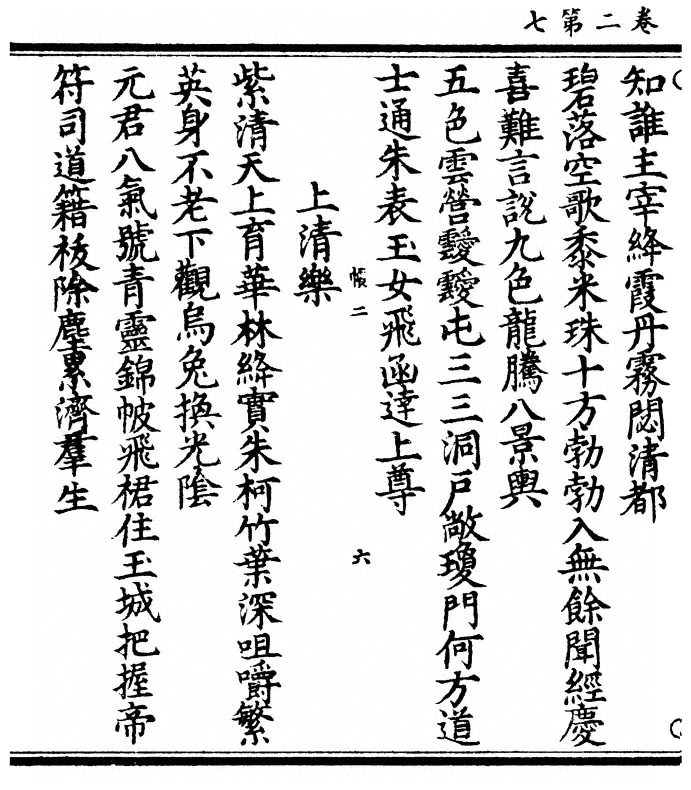 卷二第七
知誰主宰絳霞丹霧閟清都
碧落空歌黍米珠十方勃勃入無餘聞經慶
喜難言說九色龍騰八景輿
五色雲營靉靉屯三三洞戶敞瓊門何方道
士通朱表玉女飛函達上尊
帳二
六
上清樂
紫清天上育華林絳實朱柯竹葉深咀嚼繁
英身不老下觀烏兔換光陰
元君八氣號青靈錦帔飛裙住玉城把握帝
符司道籍祓除塵累濟羣生